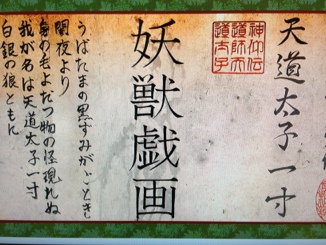 天道太子一寸
神仙伝
道師大
道太子
妖獣戯画
うばたまの黒すみがごときし
闇夜より
身の毛もよだつ物の怪現れぬ
我が名は天道太子一寸
白銀の狼ともに